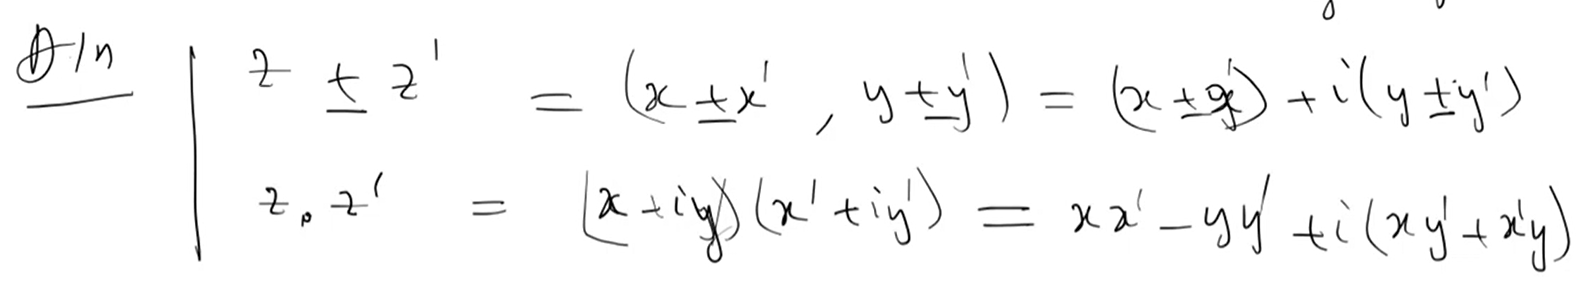 Đ/n z ± z' = (x ± x', y ± y') = (x ± x') + i(y ± y')
z.z' = (x + iy)(x' + iy') = xx' - yy' + i(xy' + x'y)